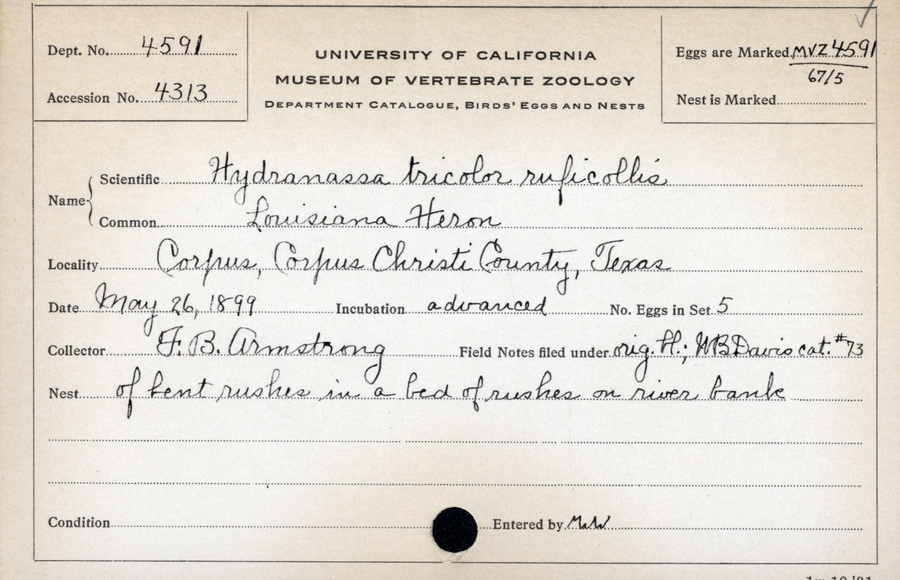 Dept. No. 4591
Accession No. 4313
UNIVERSITY OF CALIFORNIA
MUSEUM OF VERTEBRATE ZOOLOGY
DEPARTMENT CATALOGUE, BIRDS' EGGS AND NESTS
Eggs are Marked MVZ 4591
67/5
Nest is Marked
Name
Scientific Hydranassa tricolor ruficollis
Common Louisiana Heron
Locality Corpus, Corpus Christi County, Texas
Date May 26, 1899 Incubation advanced No. Eggs in Set 5
Collector F. B. Armstrong Field Notes filed under orig. H.; WBDavis cat. #73
Nest of bent rushes in a bed of rushes on river bank
Condition Entered by